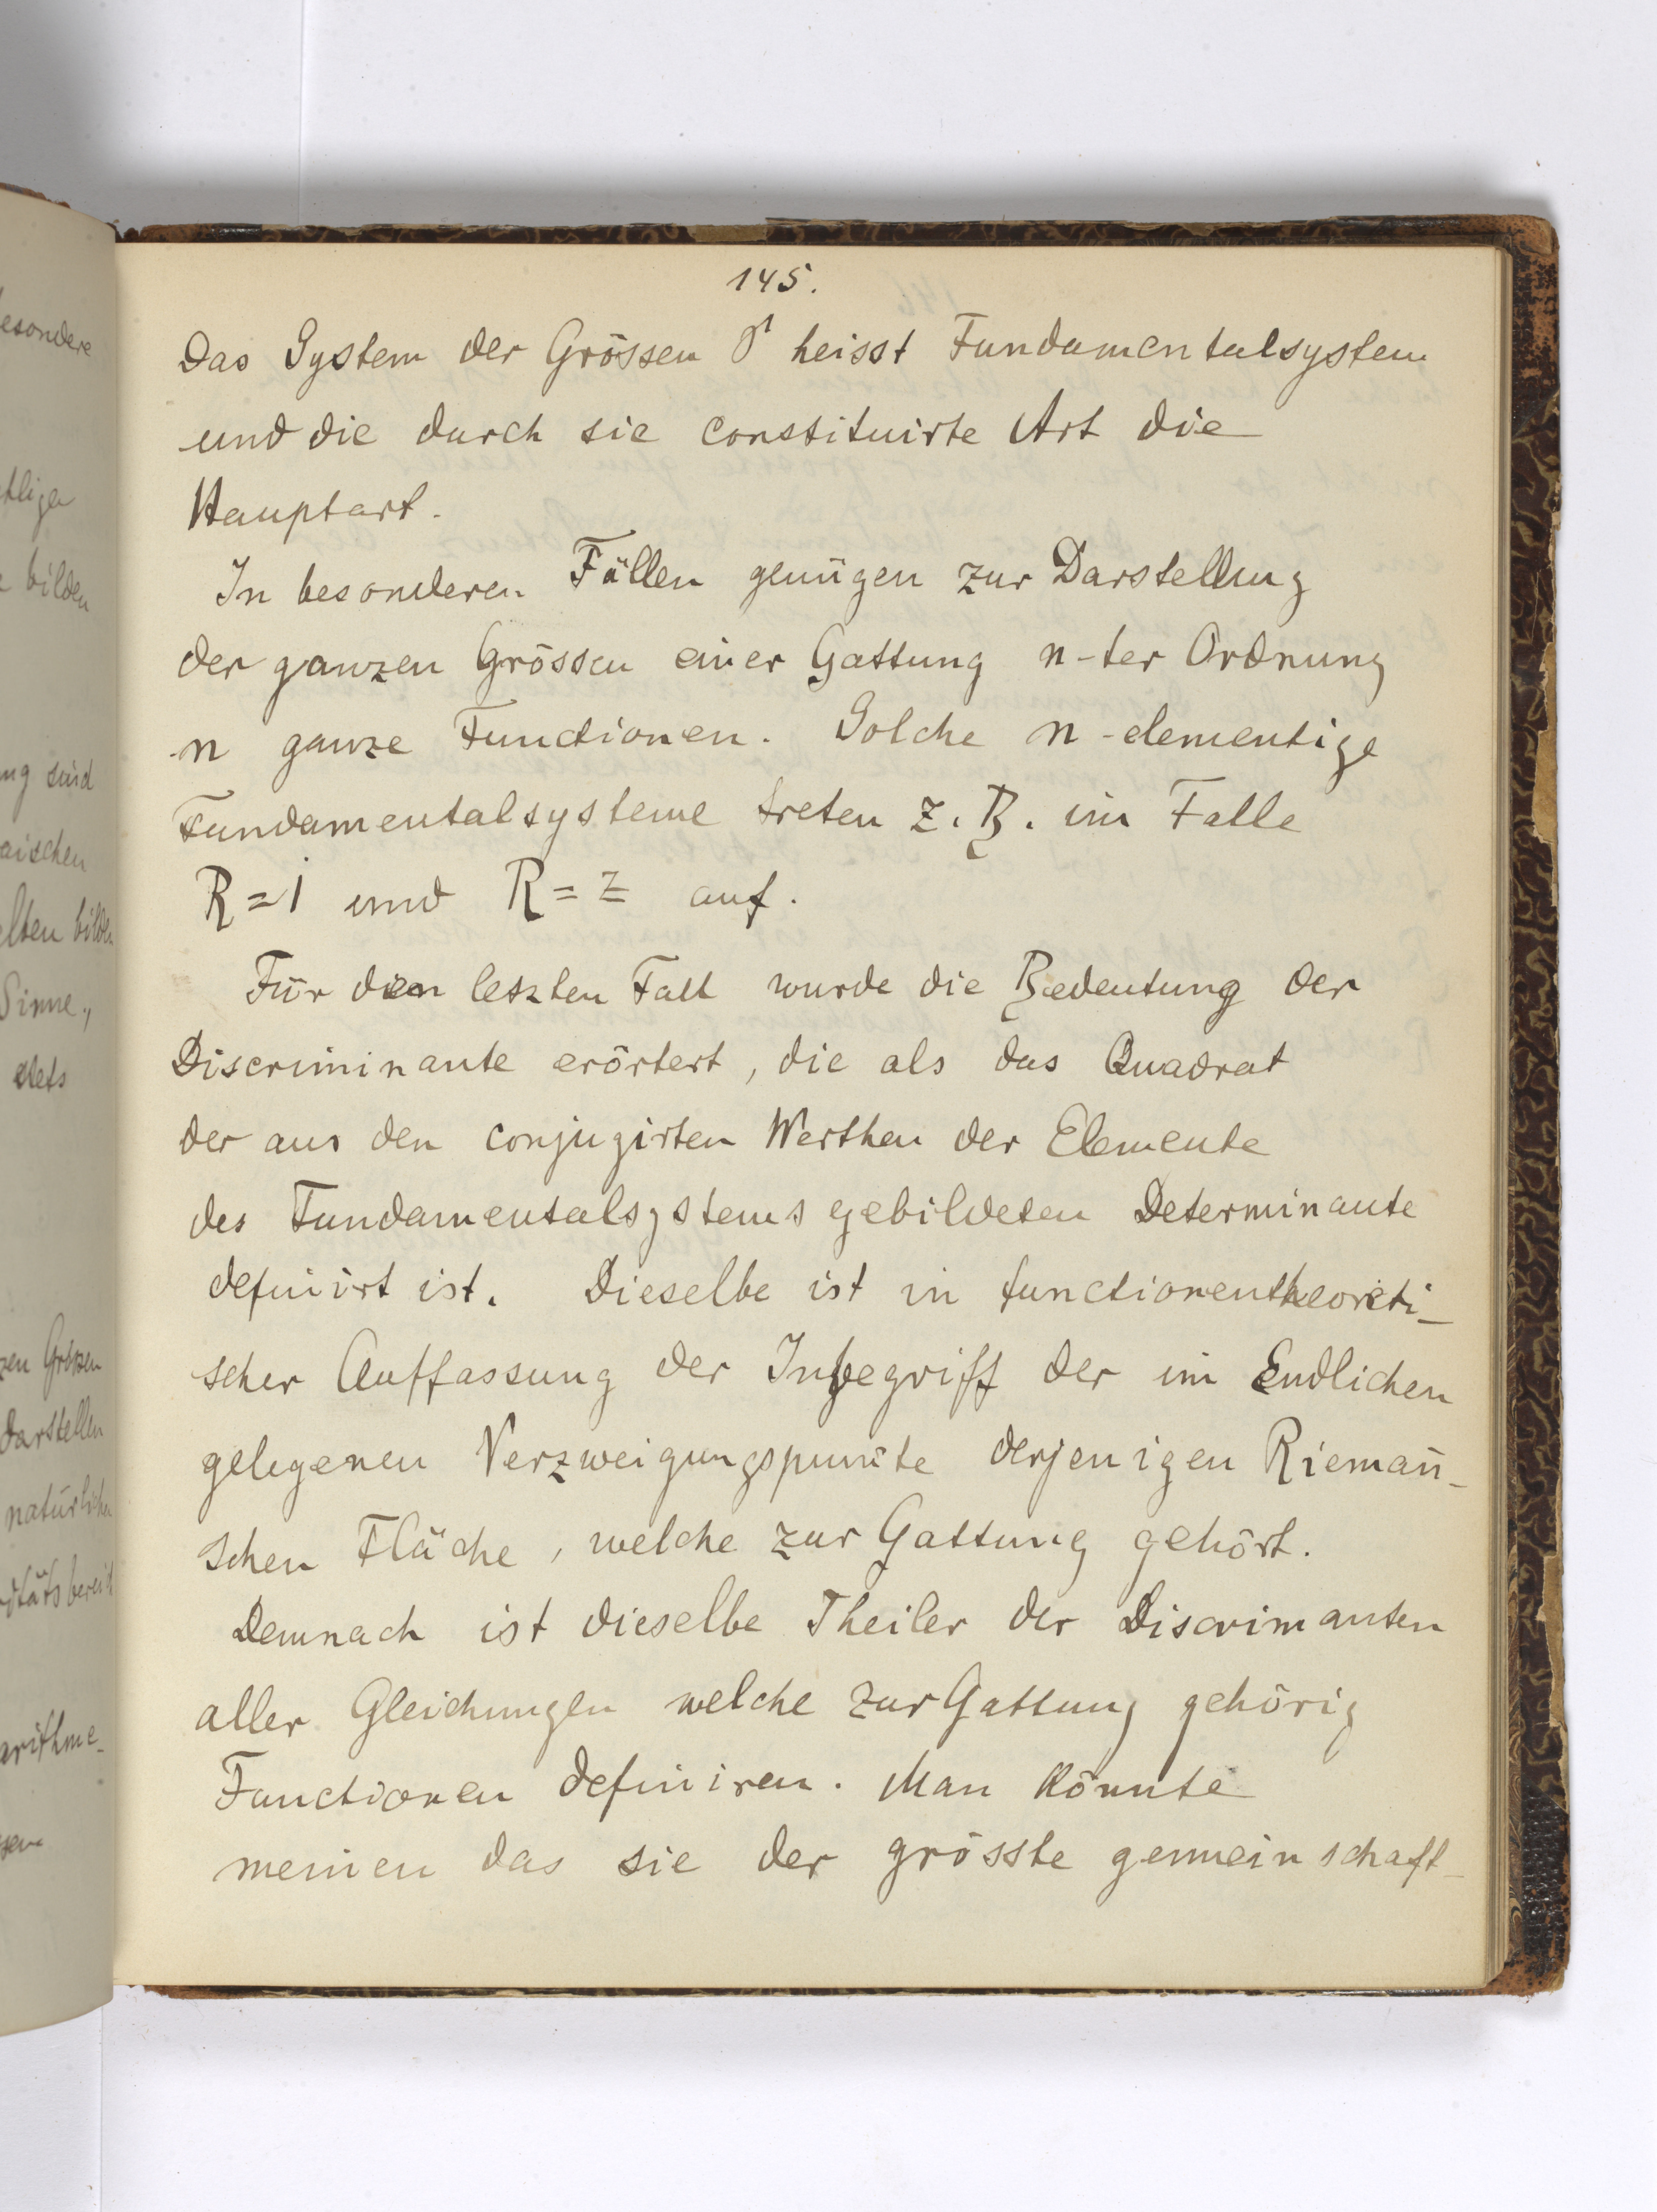 145.
Das System der Grössen heisst Fundamentalsystem
und die durch sie constituirte Art die
Hauptart.
In besonderen Fällen genügen zur Darstellung
der ganzen Grössen einer Gattung n-ter Ordnung
n ganze Functionen. Solche n-elementige
Fundamentalsysteme treten z. B. im Falle
R=1 und R=z auf.
Für den letzten Fall wurde die Bedeutung der
Discriminante erörtert, die als das Quadrat
der aus den conjugirten Werthen der Elemente
des Fundamentalsystems gebildeten Determinante
definirt ist. Dieselbe ist in functionentheoreti-
scher Auffassung der Inbegriff der im Endlichen
gelegenen Verzweigungspunkte derjenigen Rieman̄-
schen Fläche, welche zur Gattung gehört.
Demnach ist dieselbe Theiler der Discrimanten
aller Gleichungen welche zur Gattung gehörig
Functionen definiren. Man könnte
meinen das sie der grösste gemeinschaft-
esondere
bilden
ng sind
aischen
elten bilden
Sinne.,
stets
zen Grössen
darstellen
natürlichen
arithme-